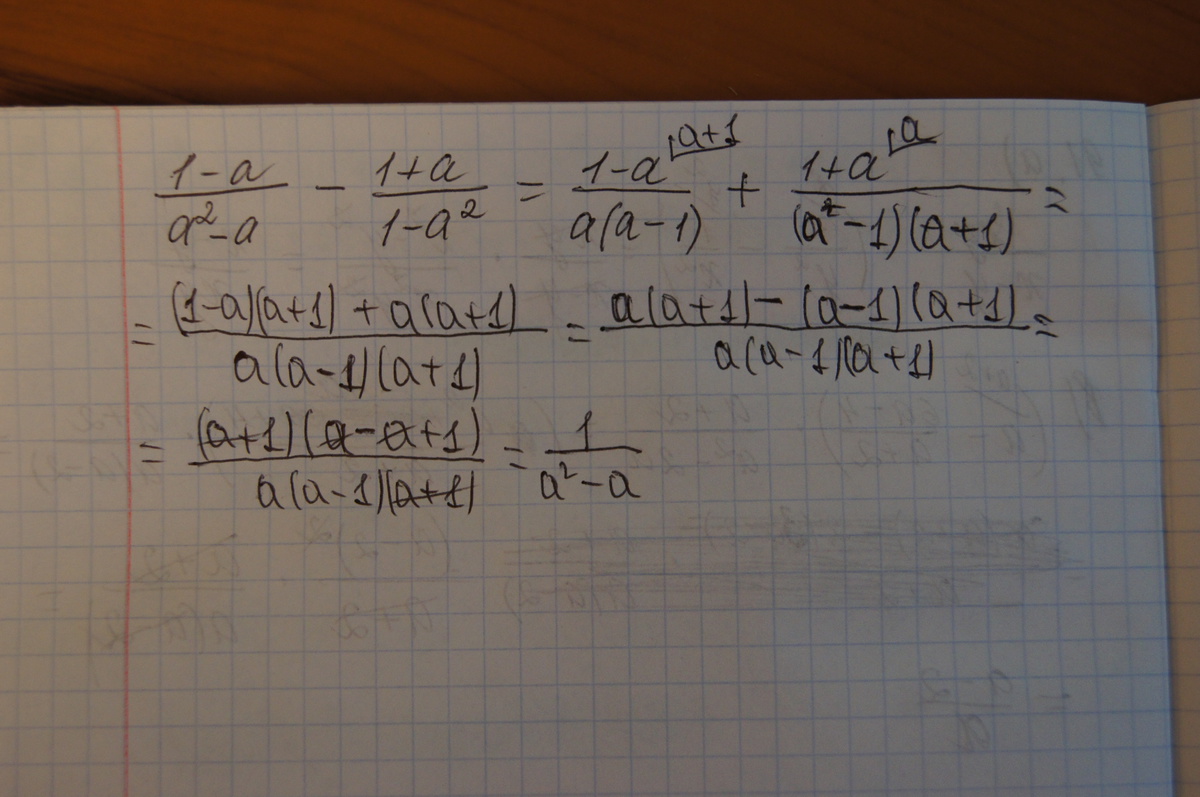 (1-a)/(a²-a) - (1+a)/(1-a²) = (1-a)⌈a+1/(a(a-1)) + (1+a)⌈a/((a-1)(a+1)) =
= ((1-a)(a+1) + a(a+1))/(a(a-1)(a+1)) = (a(a+1) - (a-1)(a+1))/(a(a-1)(a+1)) =
= ((a+1)(a-a+1))/(a(a-1)(a+1)) = 1/(a²-a)